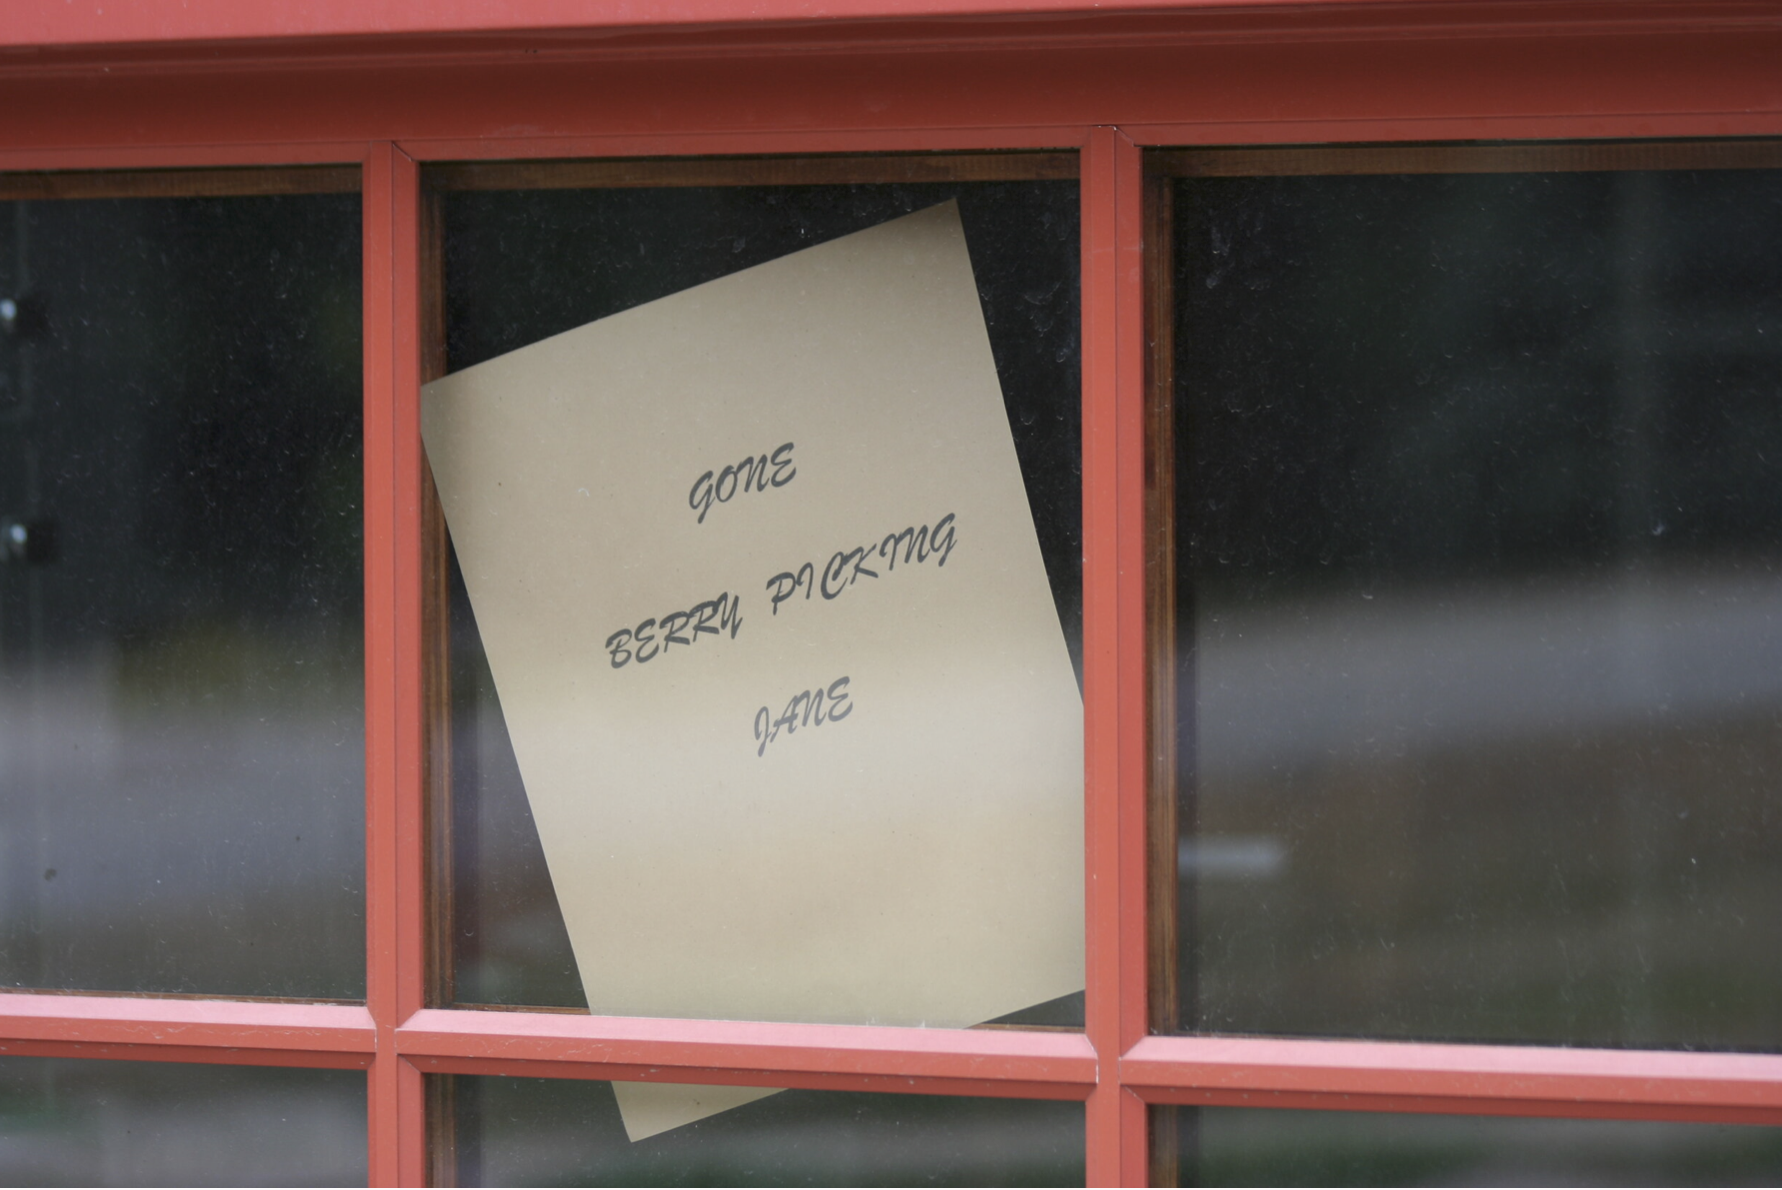 GONE
BERRY PICKING
JANE